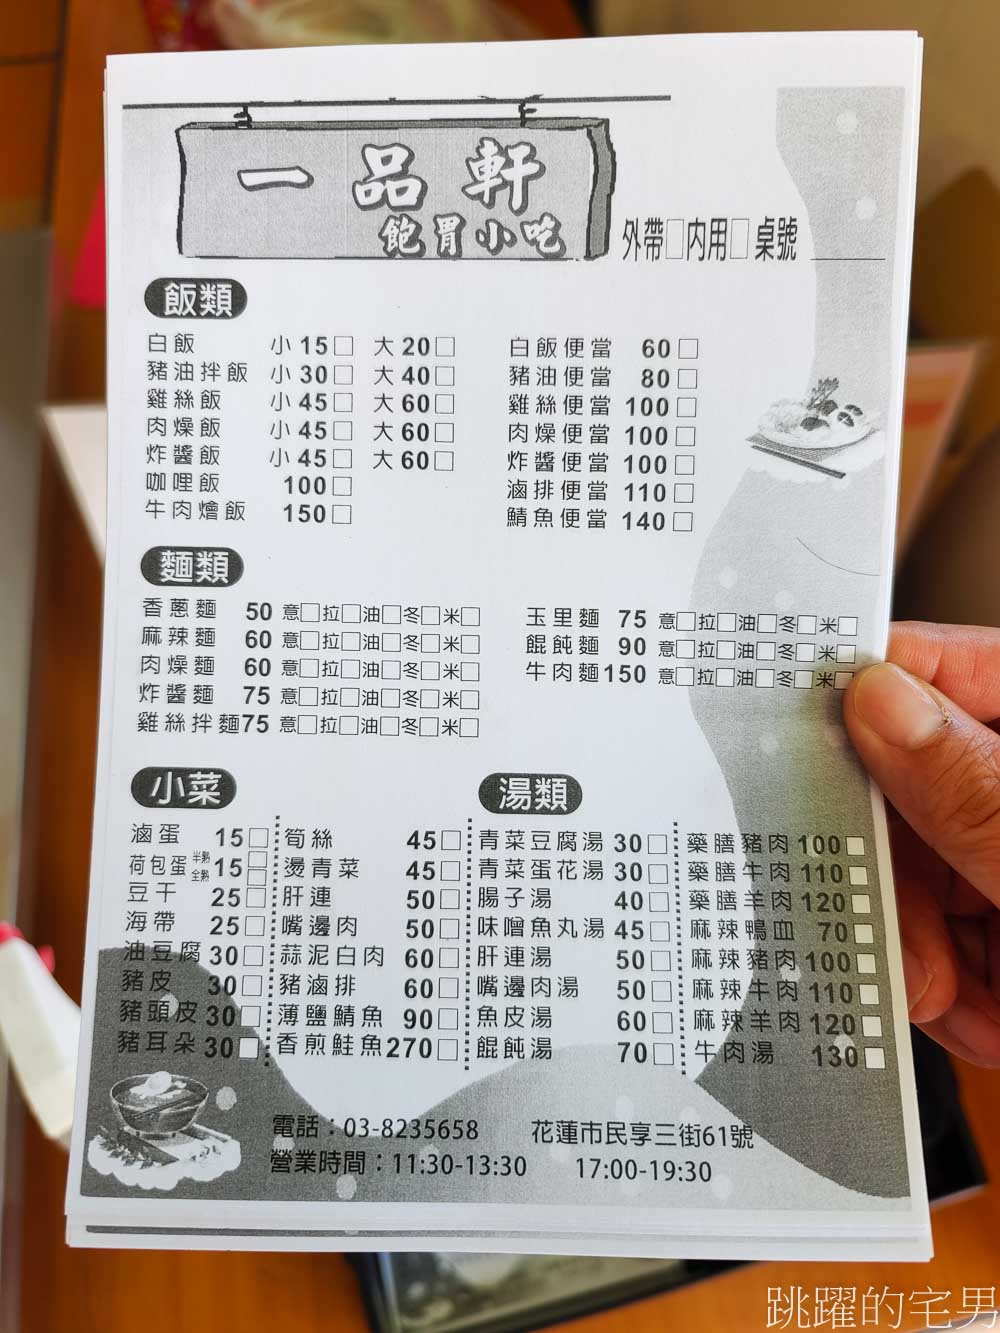 一品軒
飽胃小吃
外帶□內用□桌號
飯類
白飯 小15□ 大20□
豬油拌飯 小30□ 大40□
雞絲飯 小45□ 大60□
肉燥飯 小45□ 大60□
炸醬飯 小45□ 大60□
咖哩飯 100□
牛肉燴飯 150□
白飯便當 60□
豬油便當 80□
雞絲便當 100□
肉燥便當 100□
炸醬便當 100□
滷排便當 110□
鯖魚便當 140□
麵類
香蔥麵 50 意□拉□油□冬□米□
麻辣麵 60 意□拉□油□冬□米□
肉燥麵 60 意□拉□油□冬□米□
炸醬麵 75 意□拉□油□冬□米□
雞絲拌麵75 意□拉□油□冬□米□
玉里麵 75 意□拉□油□冬□米□
餛飩麵 90 意□拉□油□冬□米□
牛肉麵150 意□拉□油□冬□米□
小菜
滷蛋 15□
荷包蛋 半熟 全熟 15□
豆干 25□
海帶 25□
油豆腐 30□
豬皮 30□
豬頭皮 30□
豬耳朵 30□
筍絲 45□
燙青菜 45□
肝連 50□
嘴邊肉 50□
蒜泥白肉 60□
豬滷排 60□
薄鹽鯖魚 90□
香煎鮭魚270□
湯類
青菜豆腐湯 30□
青菜蛋花湯 30□
腸子湯 40□
味噌魚丸湯 45□
肝連湯 50□
嘴邊肉湯 50□
魚皮湯 60□
餛飩湯 70□
藥膳豬肉 100□
藥膳牛肉 110□
藥膳羊肉 120□
麻辣鴨皿 70□
麻辣豬肉 100□
麻辣牛肉 110□
麻辣羊肉 120□
牛肉湯 130□
電話：03-8235658 花蓮市民享三街61號
營業時間：11:30-13:30 17:00-19:30
跳躍的宅男